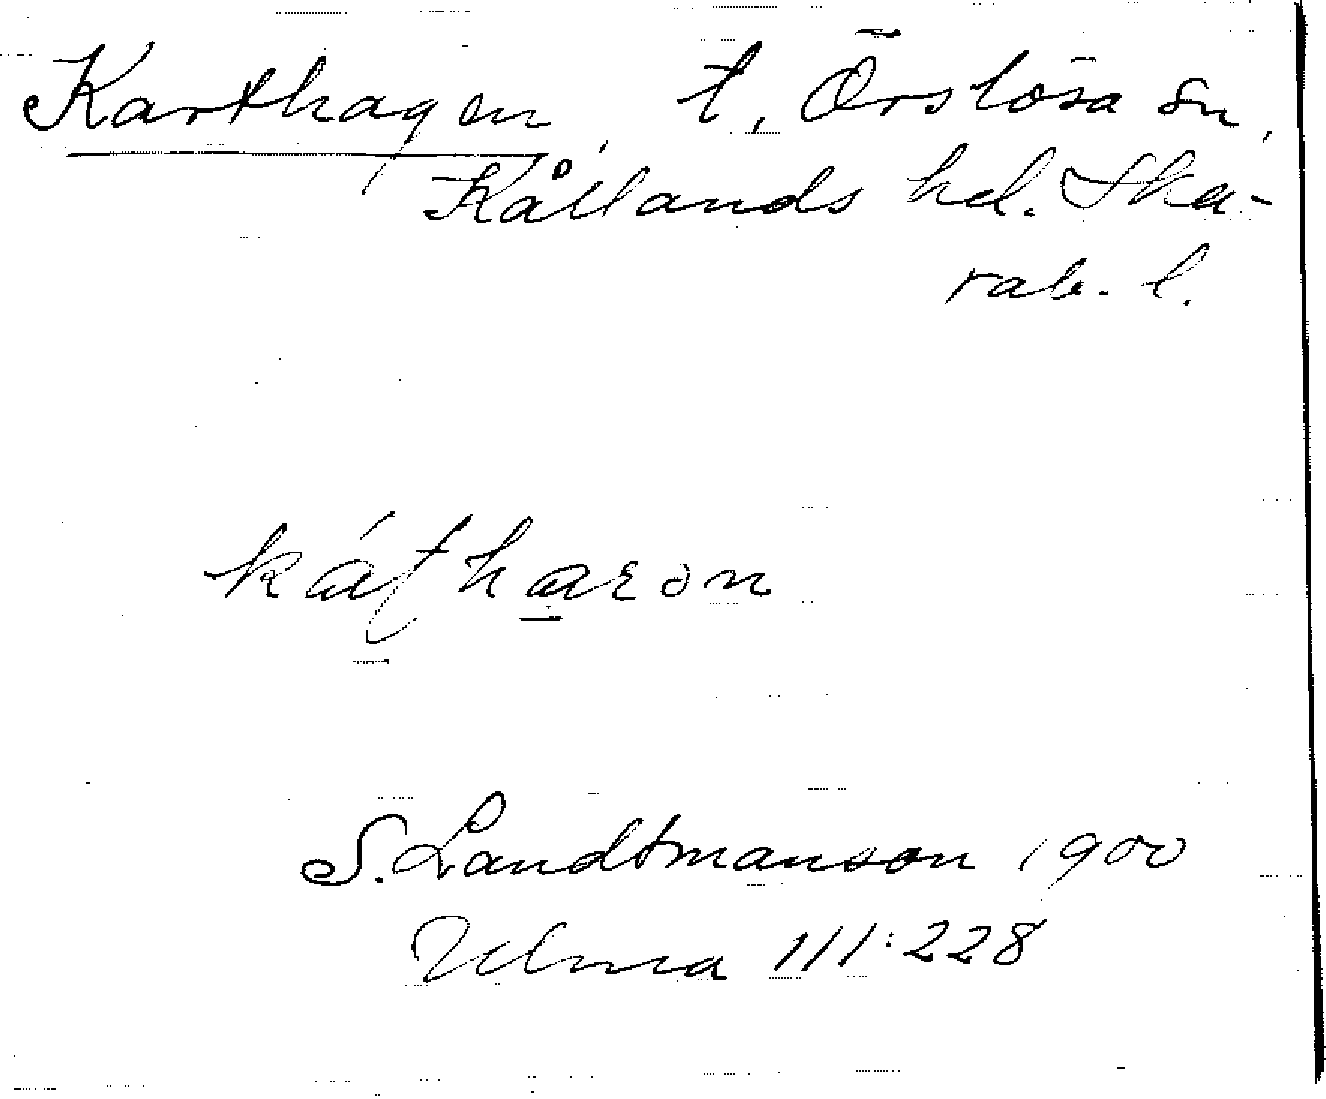 Karthagen, t, Örslösa sn,
Kållands hd. Ska-
rab. l.
kátharon
S. Landtmanson 1900
Ulma 111:228